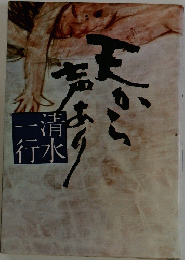 天から
声あり
清水
一行